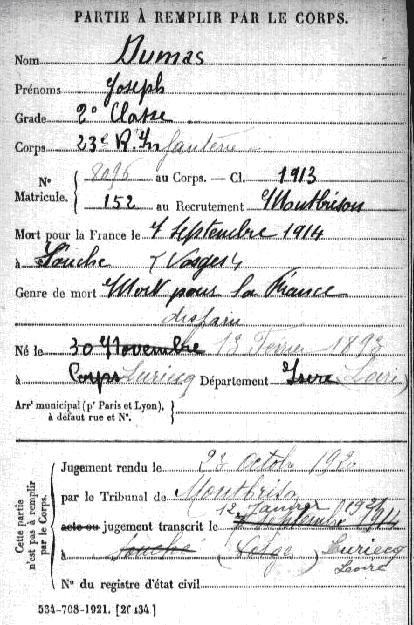 PARTIE À REMPLIR PAR LE CORPS.
Nom Dumas
Prénoms Joseph
Grade 2e Classe
Corps 23e R. Infanterie
N° Matricule. { 8096 au Corps. — Cl. 1913
152 au Recrutement Montbrison
Mort pour la France le 7 Septembre 1914
à Souche (Vosges)
Genre de mort Mort pour la France
disparu
Né le 30 Novembre 13 Février 1893
à Corps Luriecq Département Isere Loire
Arr' municipal (p' Paris et Lyon), à défaut rue et N°. }
Cette partie n'est pas à remplir par le Corps.
Jugement rendu le 23 Octobre 1920
par le Tribunal de Montbrison
12 Janvier 1921
acte ou jugement transcrit le 7 Septembre 1914
à Souche (Vosges) Luriecq
Loire
N° du registre d'état civil
534-708-1921. [26434.]